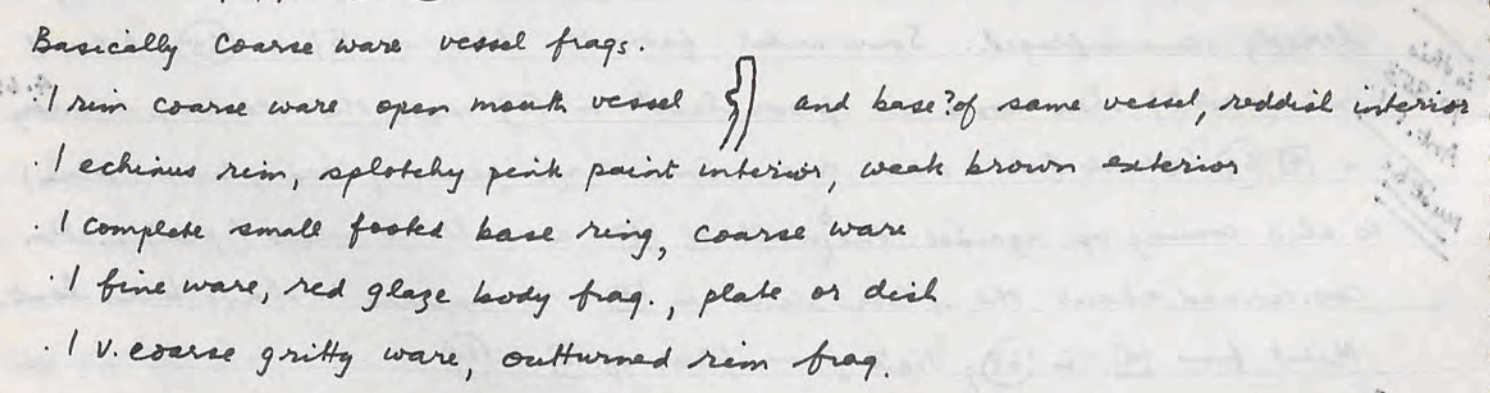 Basically Coarse ware vessel frags.
· 1 rim coarse ware open mouth vessel } and base? of same vessel, reddish interior
· 1 echinus rim, splotchy pink paint interior, weak brown exterior
· 1 complete small footed base ring, coarse ware
· 1 fine ware, red glaze body frag., plate or dish
· 1 v. coarse gritty ware, outturned rim frag.